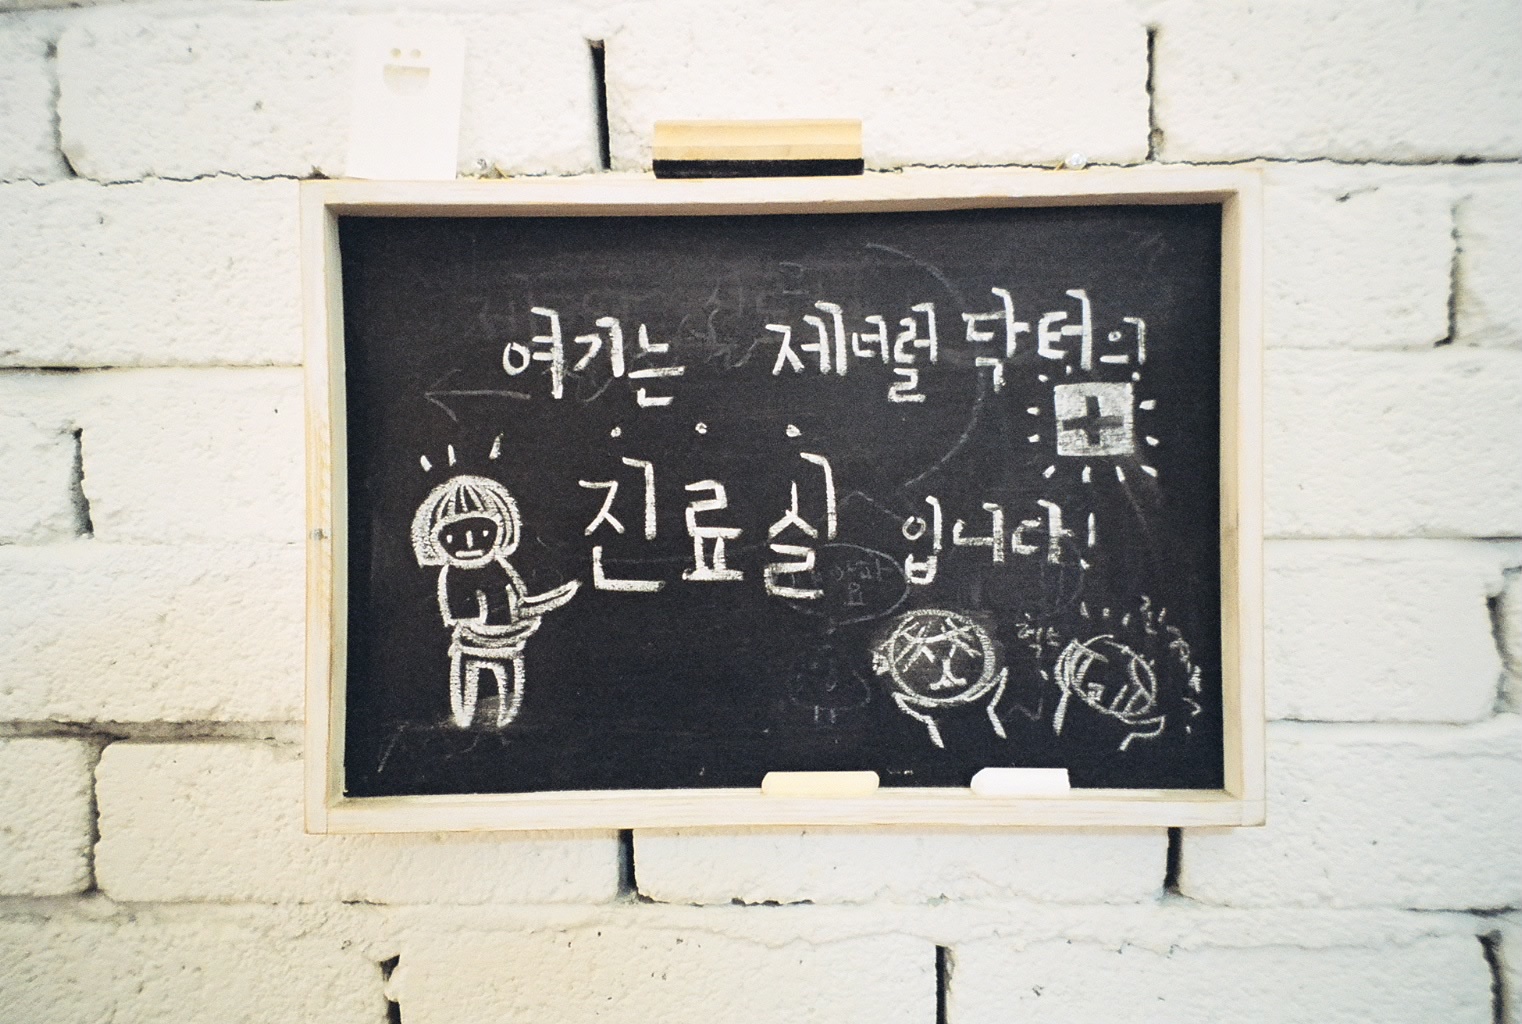 여기는 제너럴 닥터의
진료실 입니다!